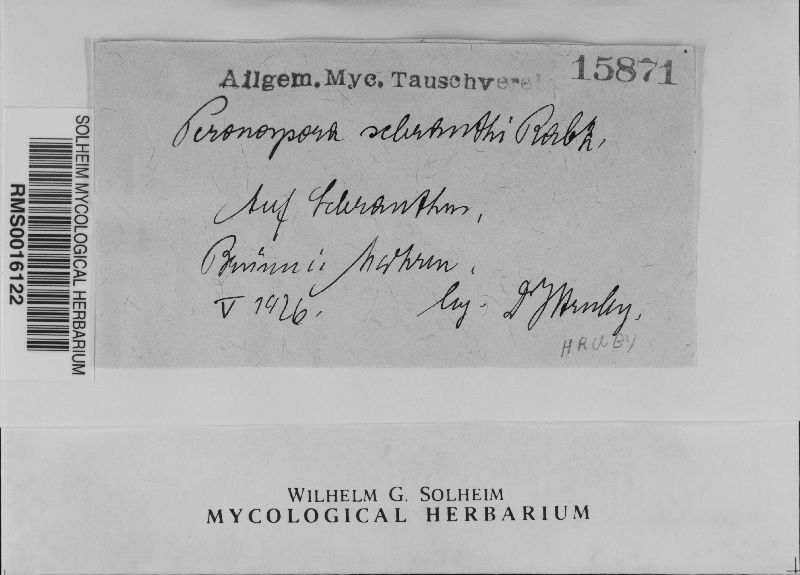 Allgem. Myc. Tauschverein
15871
Peronospora scleranthi Rabh.
Auf Scleranthus,
Brünn i. Mähren.
V 1926.
leg. Dr J Hruby.
HRUBY
SOLHEIM MYCOLOGICAL HERBARIUM
RMS0016122
WILHELM G. SOLHEIM
MYCOLOGICAL HERBARIUM